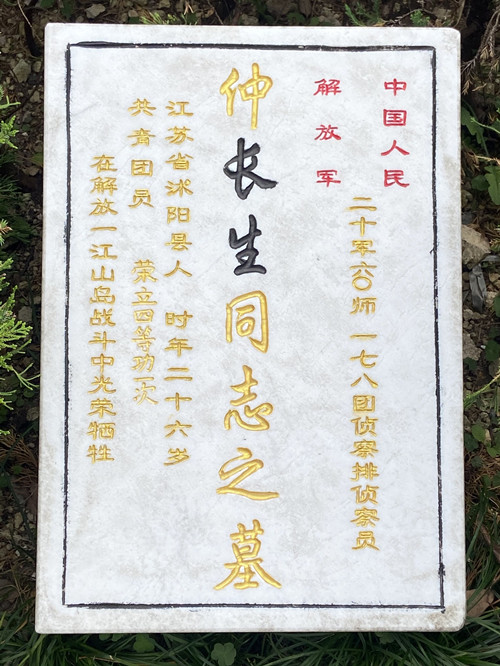 中国人民
解放军
二十军六〇师 一七八团侦察排侦察员
仲长生同志之墓
江苏省沭阳县人 时年二十六岁
共青团员 荣立四等功一次
在解放一江山岛战斗中光荣牺牲